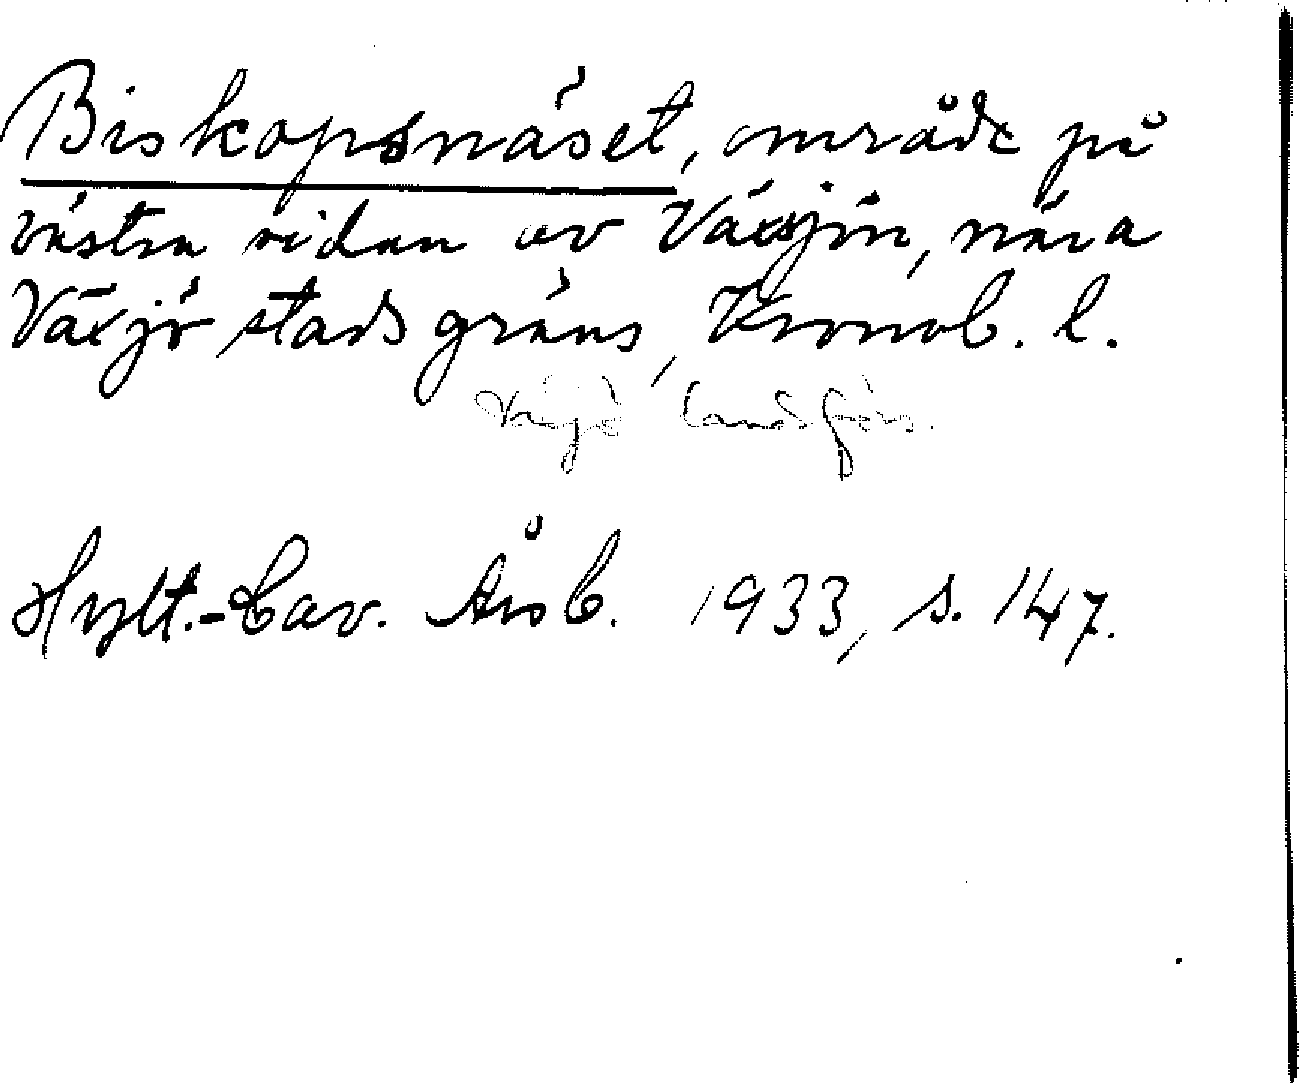 Biskopsnäset, område på
västra sidan av Växsjön, nära
Växjö stads gräns, Kronob. l.
Växjö landsförs.
Hylt.-Cav. Årsb. 1933, s. 147.